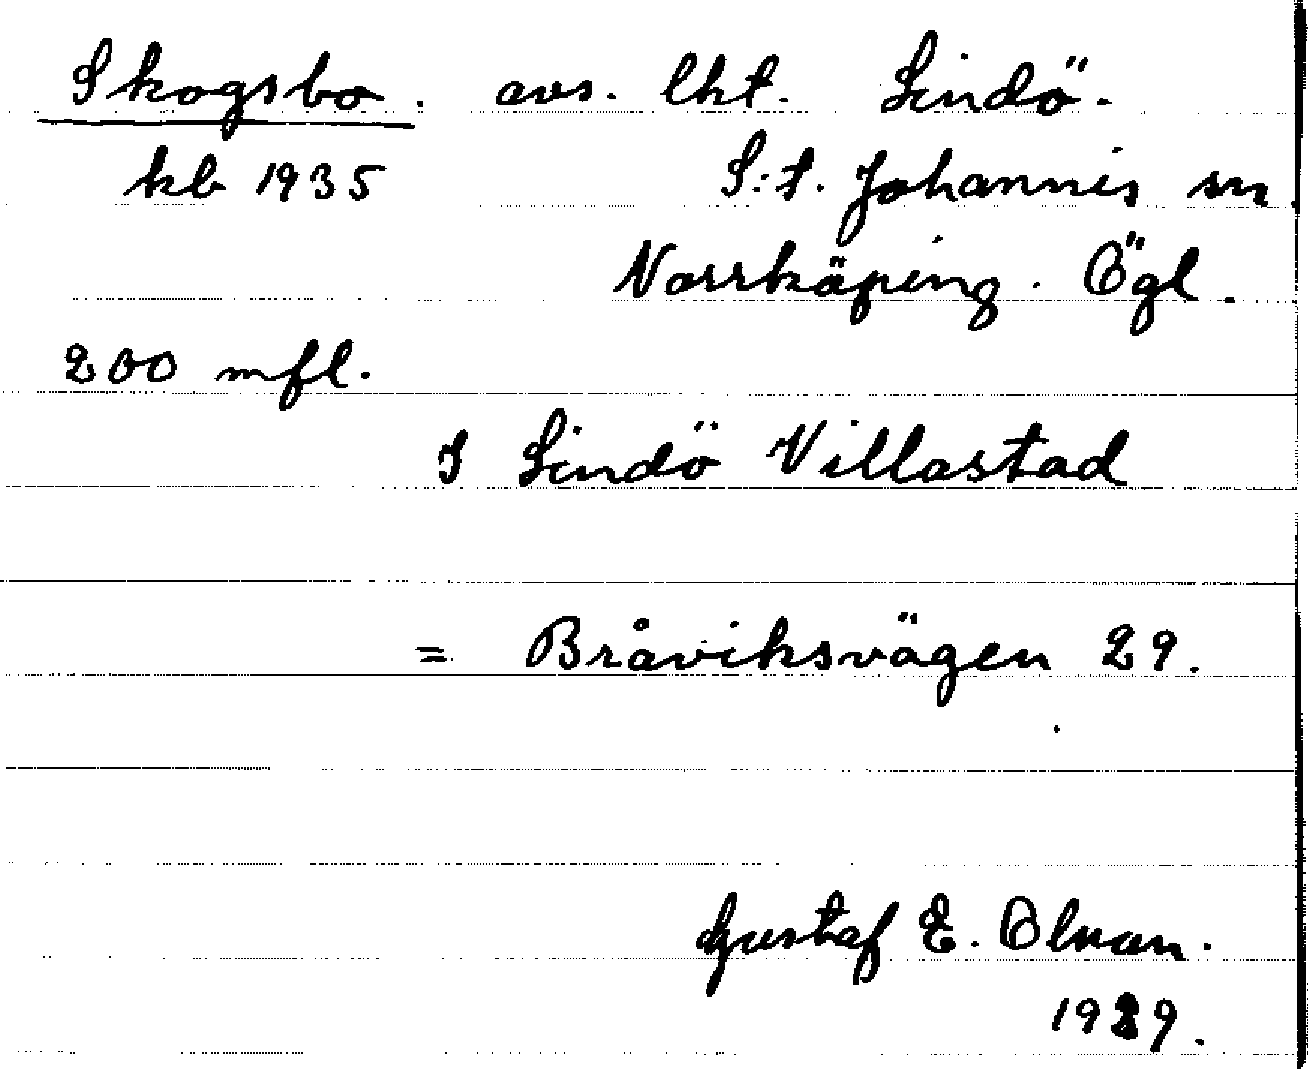 Skogsbo. avs. lht. Lindö.
kb 1935 S:t. Johannis sn
Norrköping. Ögl.
200 mfl.
I Lindö Villastad
= Bråviksvägen 29.
Gustaf E. Olvan.
1929.